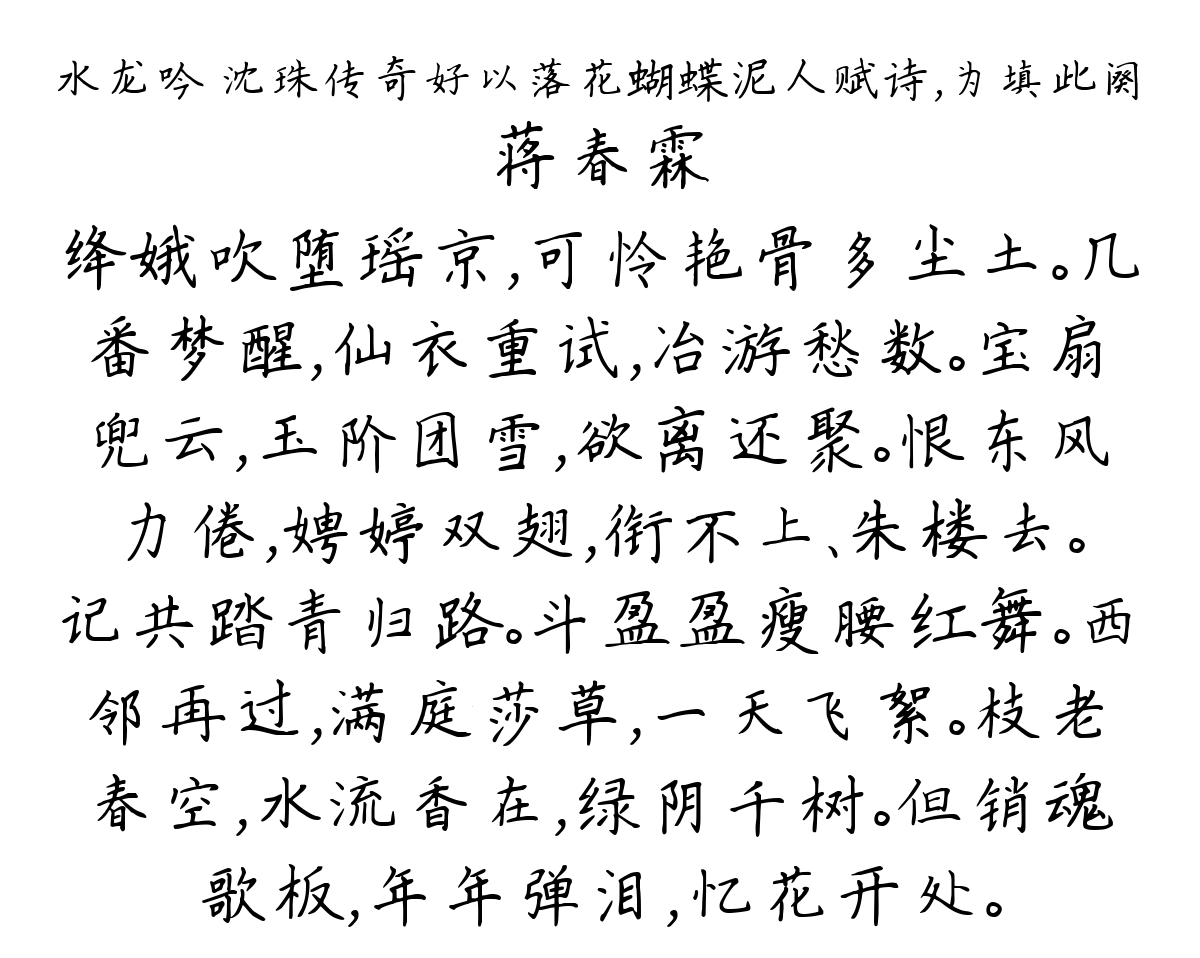 水龙吟 沈珠传奇好以落花蝴蝶泥人赋诗,为填此阕
蒋春霖
绛娥吹堕瑶京,可怜艳骨多尘土。几
番梦醒,仙衣重试,冶游愁数。宝扇
兜云,玉阶团雪,欲离还聚。恨东风
力倦,娉婷双翅,衔不上、朱楼去。
记共踏青归路。斗盈盈瘦腰红舞。西
邻再过,满庭莎草,一天飞絮。枝老
春空,水流香在,绿阴千树。但销魂
歌板,年年弹泪,忆花开处。